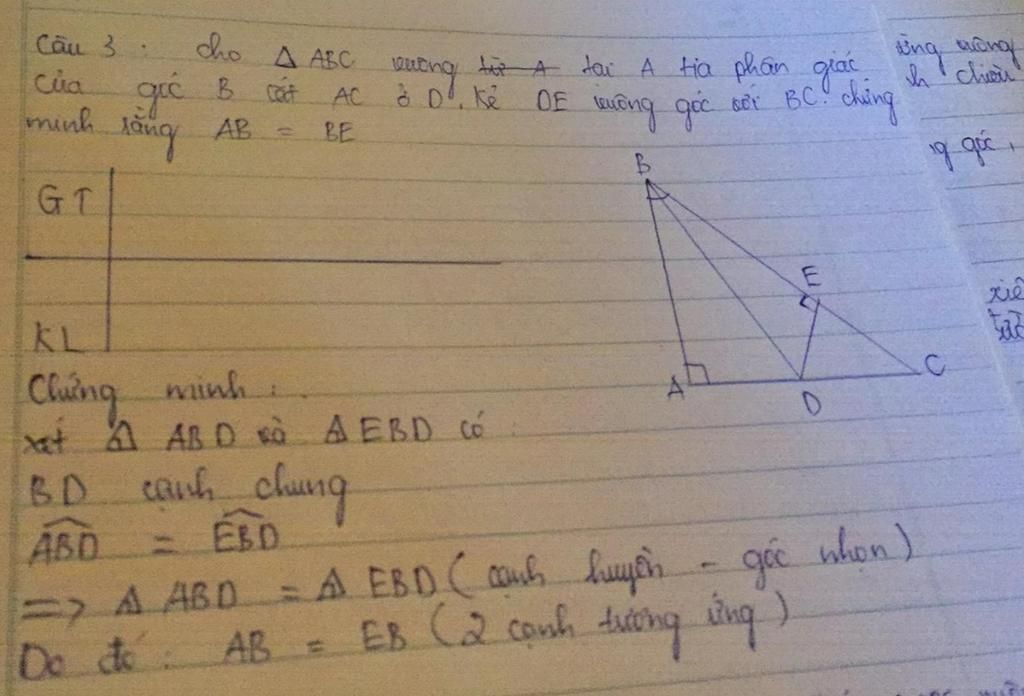 Câu 3: Cho Δ ABC vuông từ A tại A tia phân giác
của góc B cắt AC ở D. Kẻ DE vuông góc với BC. chứng
minh rằng AB = BE
GT
KL
B
E
A
D
C
Chứng minh:
xét Δ ABD và Δ EBD có
BD cạnh chung
ABD = EBD
=> Δ ABD = Δ EBD (cạnh huyền - góc nhọn)
Do đó: AB = EB (2 cạnh tương ứng)
góc,